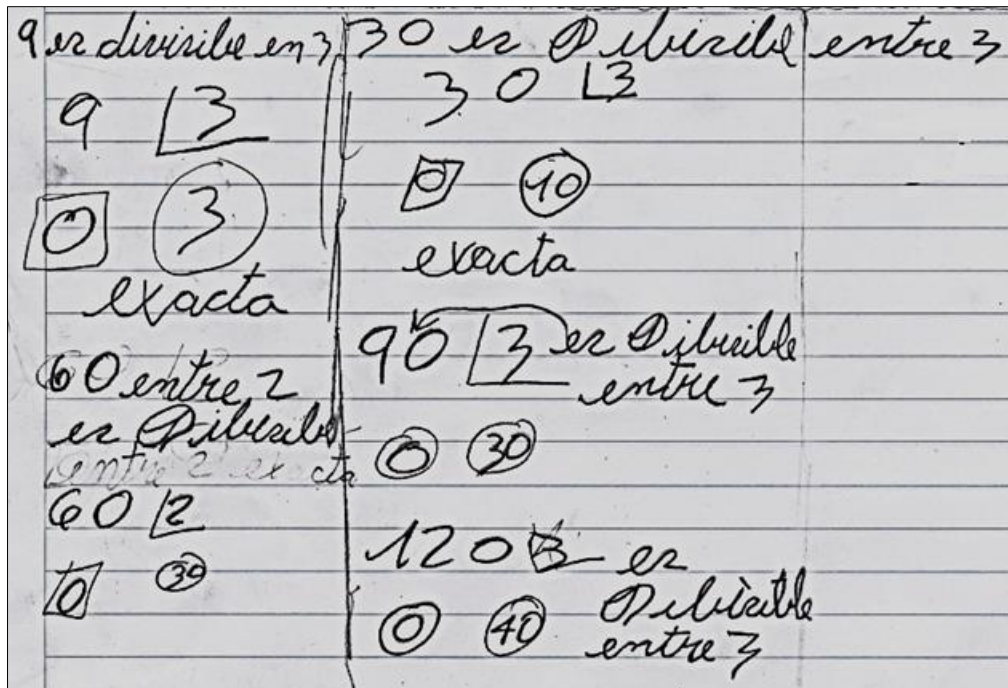 9 es divisible en 3
9 3
0 3
exacta
60 entre 2
es Dibisible
entre 2 exacta
60 2
0 30
30 es Dibisible entre 3
30 3
0 10
exacta
90 3 es Dibisible
entre 3
0 30
120 3 es
0 40 Dibisible
entre 3